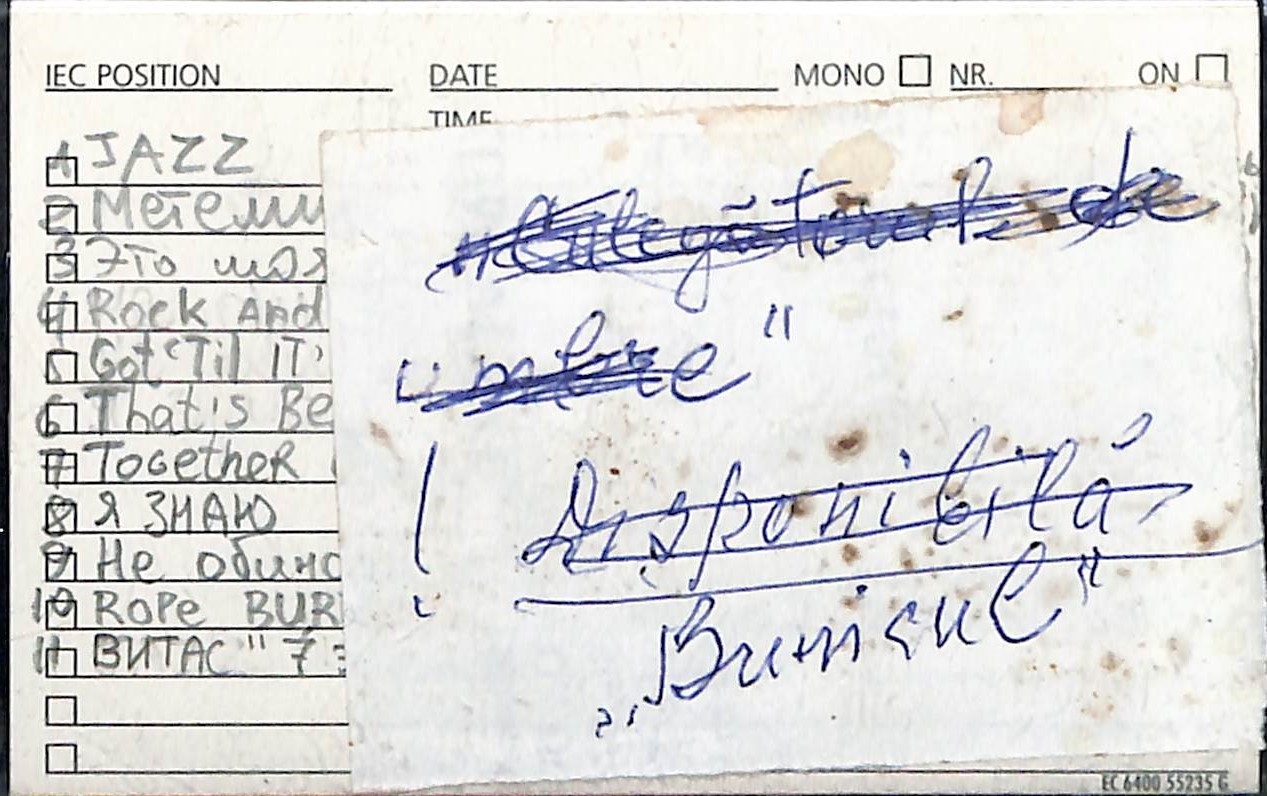 IEC POSITION DATE MONO NR. ON
TIME
1 JAZZ
2 Метели
3 Это моя
4 Rock And
5 Got 'Til IT'
6 That's Be
7 Together
8 Я ЗНАЮ
9 Не
10 Rope BUR
11 ВИТАС "7 э
„Culegătorul de
umbre"
! Disponibilă
„Bunicul"
EC 6400 55235 G